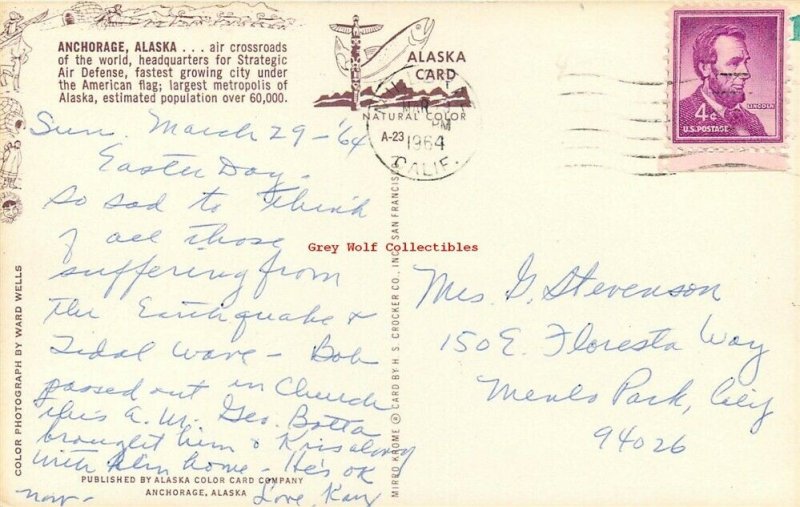 ANCHORAGE, ALASKA . . . air crossroads
of the world, headquarters for Strategic
Air Defense, fastest growing city under
the American flag; largest metropolis of
Alaska, estimated population over 60,000.
ALASKA
CARD
NATURAL COLOR
MAR
PM
A-23
1964
CALIF.
4¢
LINCOLN
U.S. POSTAGE
Sun. March 29-'64
Easter Day.
So sad to think
of all those
suffering from
the Earthquake &
Tidal wave - Bob
passed out in Church
this A.M. Geo. Botta
brought him & Kris along
with him home - He's OK
now - Love, Kay
Grey Wolf Collectibles
Mrs. G. Stevenson
150 E. Floresta Way
Menlo Park, Calif
94026
COLOR PHOTOGRAPH BY WARD WELLS
MIRRO KROME ® CARD BY H. S. CROCKER CO., INC., SAN FRANCIS
PUBLISHED BY ALASKA COLOR CARD COMPANY
ANCHORAGE, ALASKA